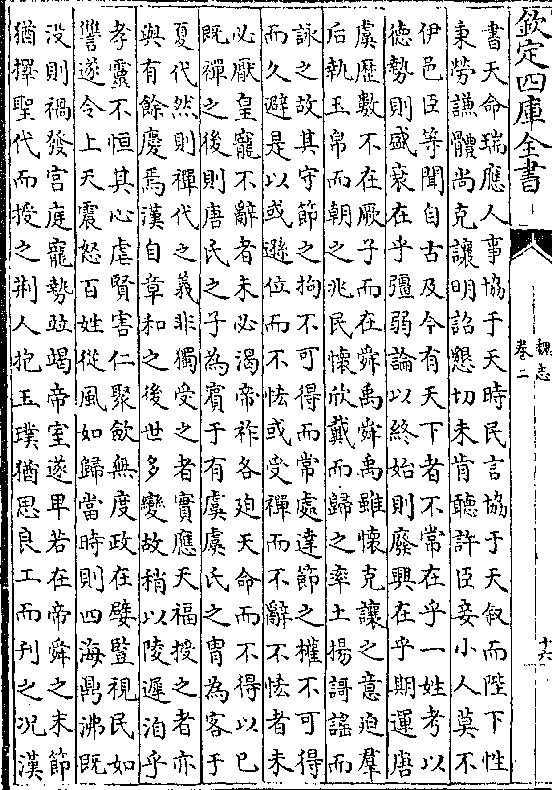 欽定四庫全書
魏志
卷二
十六
書天命瑞應人事協于天時民言協于天叙而陛下性
秉勞謙體尚克讓明詔懇切未肯聽許臣妾小人莫不
伊邑臣等聞自古及今有天下者不常在乎一姓考以
德勢則盛衰在乎彊弱論以終始則廢興在乎期運唐
虞歴數不在厥子而在舜禹舜禹雖懷克讓之意迫羣
后執玉帛而朝之兆民懷欣戴而歸之率土揚謌謠而
詠之故其守節之拘不可得而常處達節之權不可得
而久避是以或遜位而不恡或受禪而不辭不恡者未
必厭皇寵不辭者未必渴帝祚各廹天命而不得以已
既禪之後則唐氏之子為賓于有虞虞氏之胄為客于
夏代然則禪代之義非獨受之者實應天福授之者亦
與有餘慶焉漢自章和之後世多變故稍以陵遲洎乎
孝靈不恒其心虐賢害仁聚歛無度政在嬖豎視民如
讐遂令上天震怒百姓從風如歸當時則四海鼎沸既
没則禍發宫庭寵勢竝竭帝室遂卑若在帝舜之末節
猶擇聖代而授之荆人抱玉璞猶思良工而刋之况漢